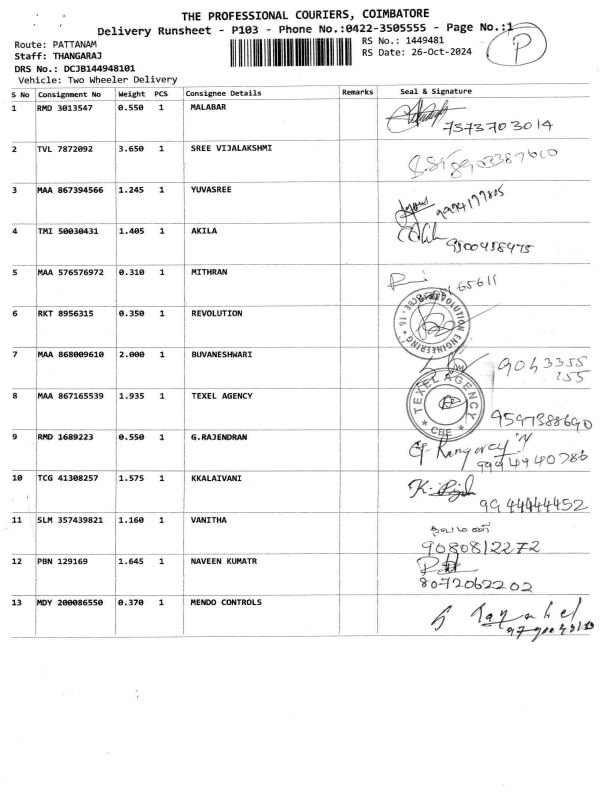 THE PROFESSIONAL COURIERS, COIMBATORE
Delivery Runsheet - P103 - Phone No.:0422-3505555 - Page No.:1
P
Route: PATTANAM
RS No.: 1449481
Staff: THANGARAJ
RS Date: 26-Oct-2024
DRS No.: DCJB144948101
Vehicle: Two Wheeler Delivery
S No Consignment No Weight PCS Consignee Details Remarks Seal & Signature
1 RMD 3013547 0.550 1 MALABAR
7373703014
2 TVL 7872092 3.650 1 SREE VIJALAKSHMI
3 MAA 867394566 1.245 1 YUVASREE
4 TMI 50030431 1.405 1 AKILA
5 MAA 576576972 0.310 1 MITHRAN
6 RKT 8956315 0.350 1 REVOLUTION
REVOLUTION ENGINEERING
7 MAA 868009610 2.000 1 BUVANESHWARI
9043355
255
8 MAA 867165539 1.935 1 TEXEL AGENCY
TEXEL AGENCY
CBE
9597388690
9 RMD 1689223 0.550 1 G.RAJENDRAN
10 TCG 41308257 1.575 1 KKALAIVANI
9944444452
11 SLM 357439821 1.160 1 VANITHA
தவமணி
9080812272
12 PBN 129169 1.645 1 NAVEEN KUMATR
8072062202
13 MDY 200086550 0.370 1 MENDO CONTROLS